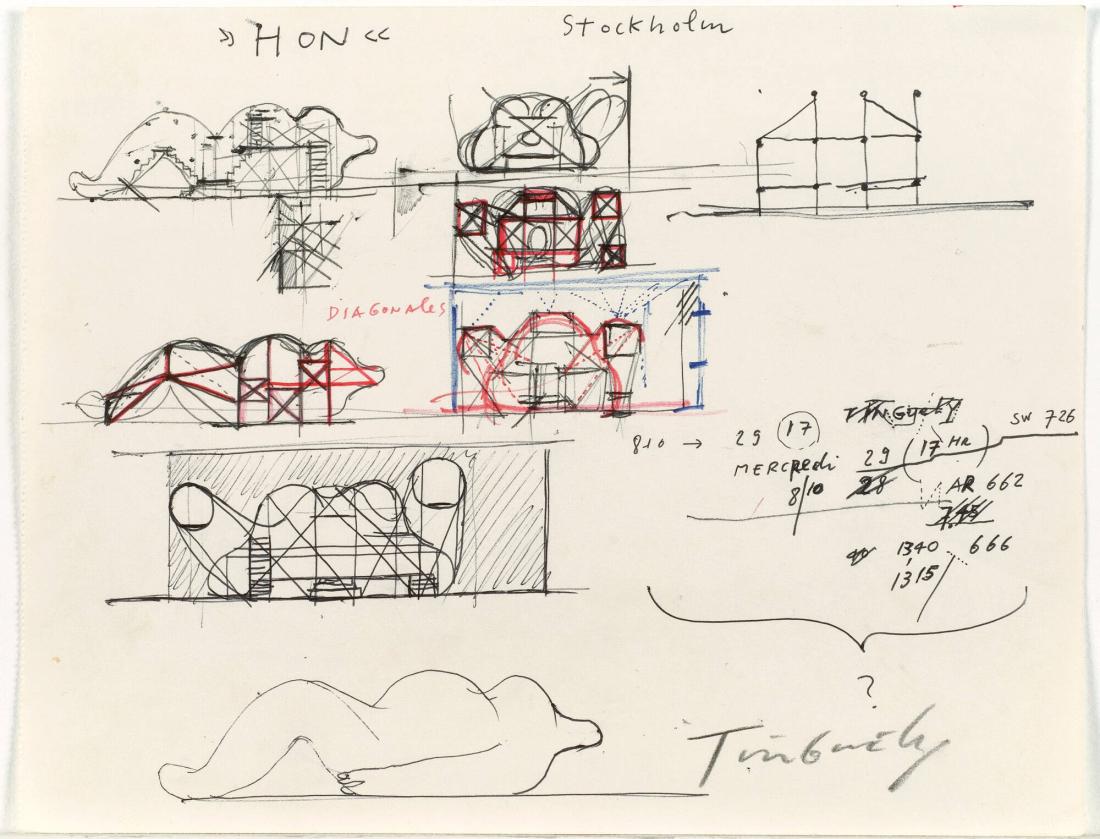 »HON«
Stockholm
DIAGONALES
810 → 29 17
MERCREdi
8/10
TINGUELY
29 (17 HR)
28
SW 726
AR 662
1340 666
1315
?
Tinguely